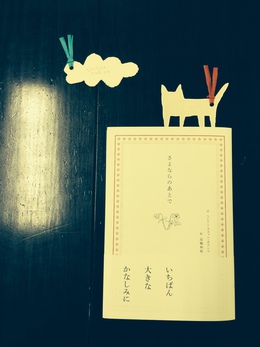 さよならのあとで
いちばん
大きな
かなしみに